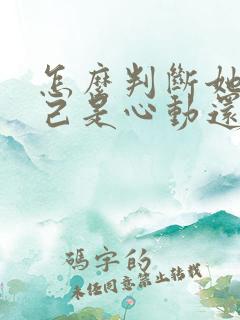 怎麼判斷她
己是心動還
碼字的
未經同意禁止轉載